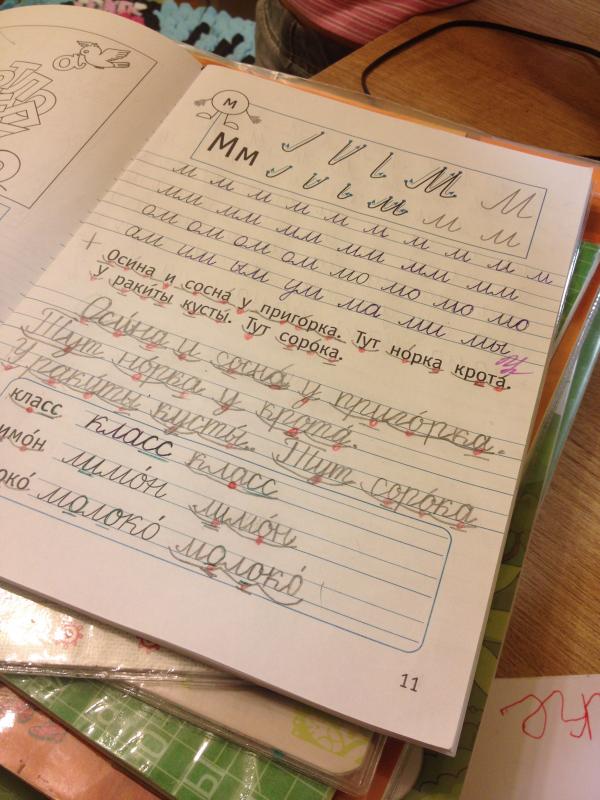 м
Мм М М
м м м
м м м м м м м м м м
мм мм мм мм мм мм
ом ом ом ом мо мо мо мо
ам им ым ум ма ми мы
Оси́на и сосна́ у приго́рка. Тут но́рка крота́.
У раки́ты кусты́. Тут соро́ка.
Оси́на и сосна́ у приго́рка.
Тут но́рка у крота́.
У раки́ты кусты́. Тут соро́ка
класс класс класс
имо́н лимо́н лимо́н
око́ молоко́ молоко́
11